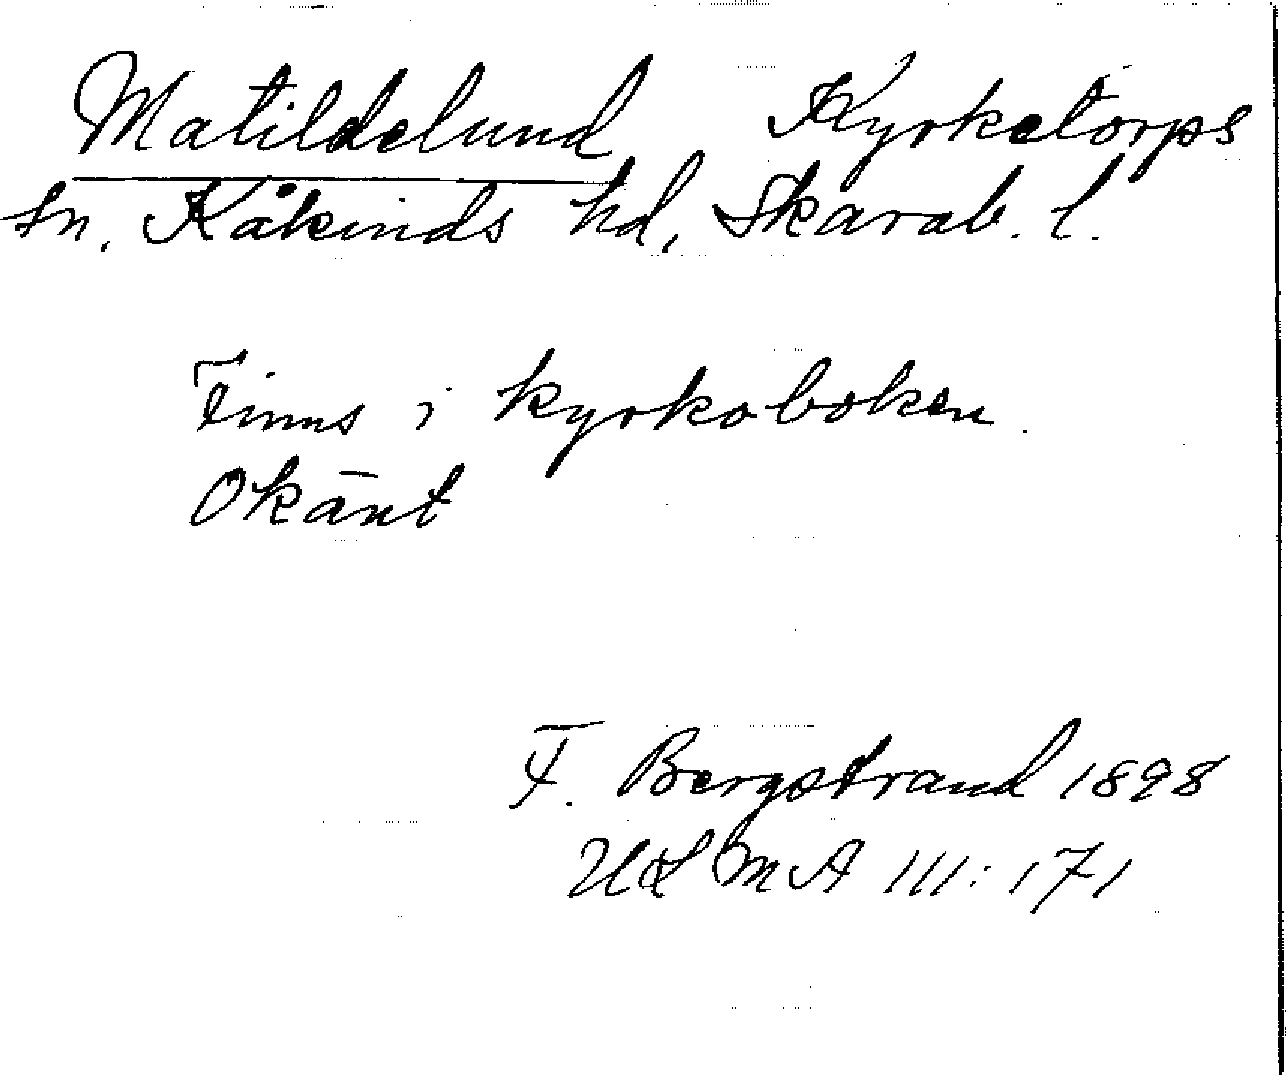 Matildelund Kyrketorps
sn. Kåkinds hd, Skarab. l.
Finns i kyrkoboken.
Okänt
F. Bergstrand 1898
ULMA 111:171